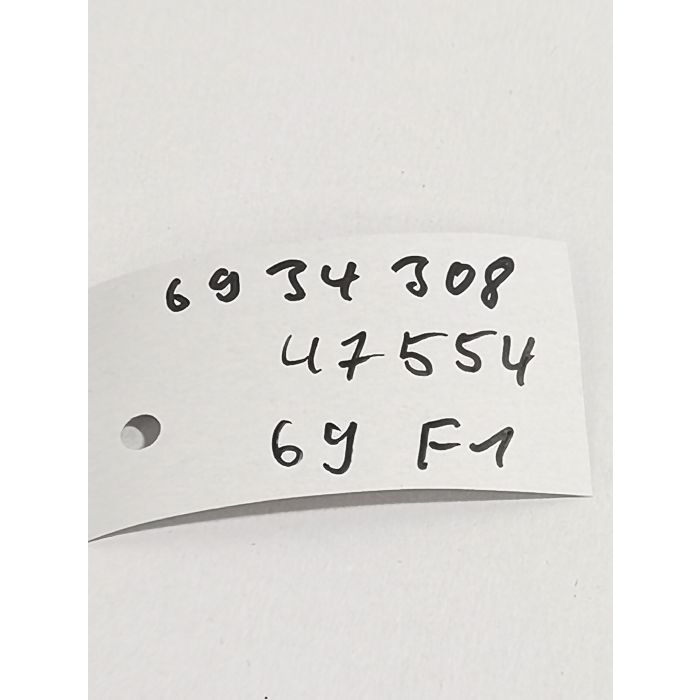 6934308
47554
69 F1